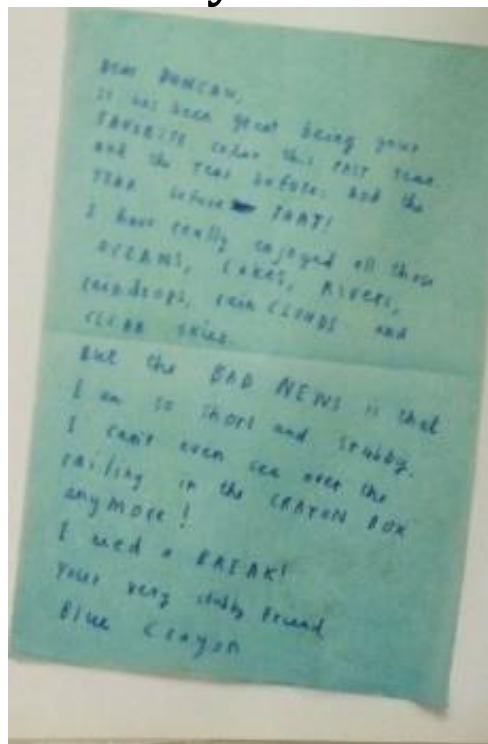 DEAR DUNCAN,
It has been great being your
FAVORITE color this PAST year.
And the year before. And the
YEAR before THAT!
I have really enjoyed all those
OCEANS, LAKES, RIVERS,
raindrops, rain CLOUDS and
CLEAR skies.
But the BAD NEWS is that
I am so short and stubby.
I can't even see over the
railing in the CRAYON BOX
anymore!
I need a BREAK!
Your very stubby friend
Blue Crayon